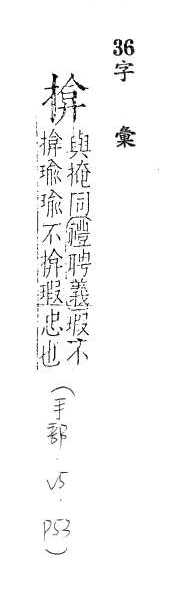 36字 彙
揜
與掩同禮聘義瑕不
揜瑜瑜不揜瑕忠也
(手部.V5.P53)